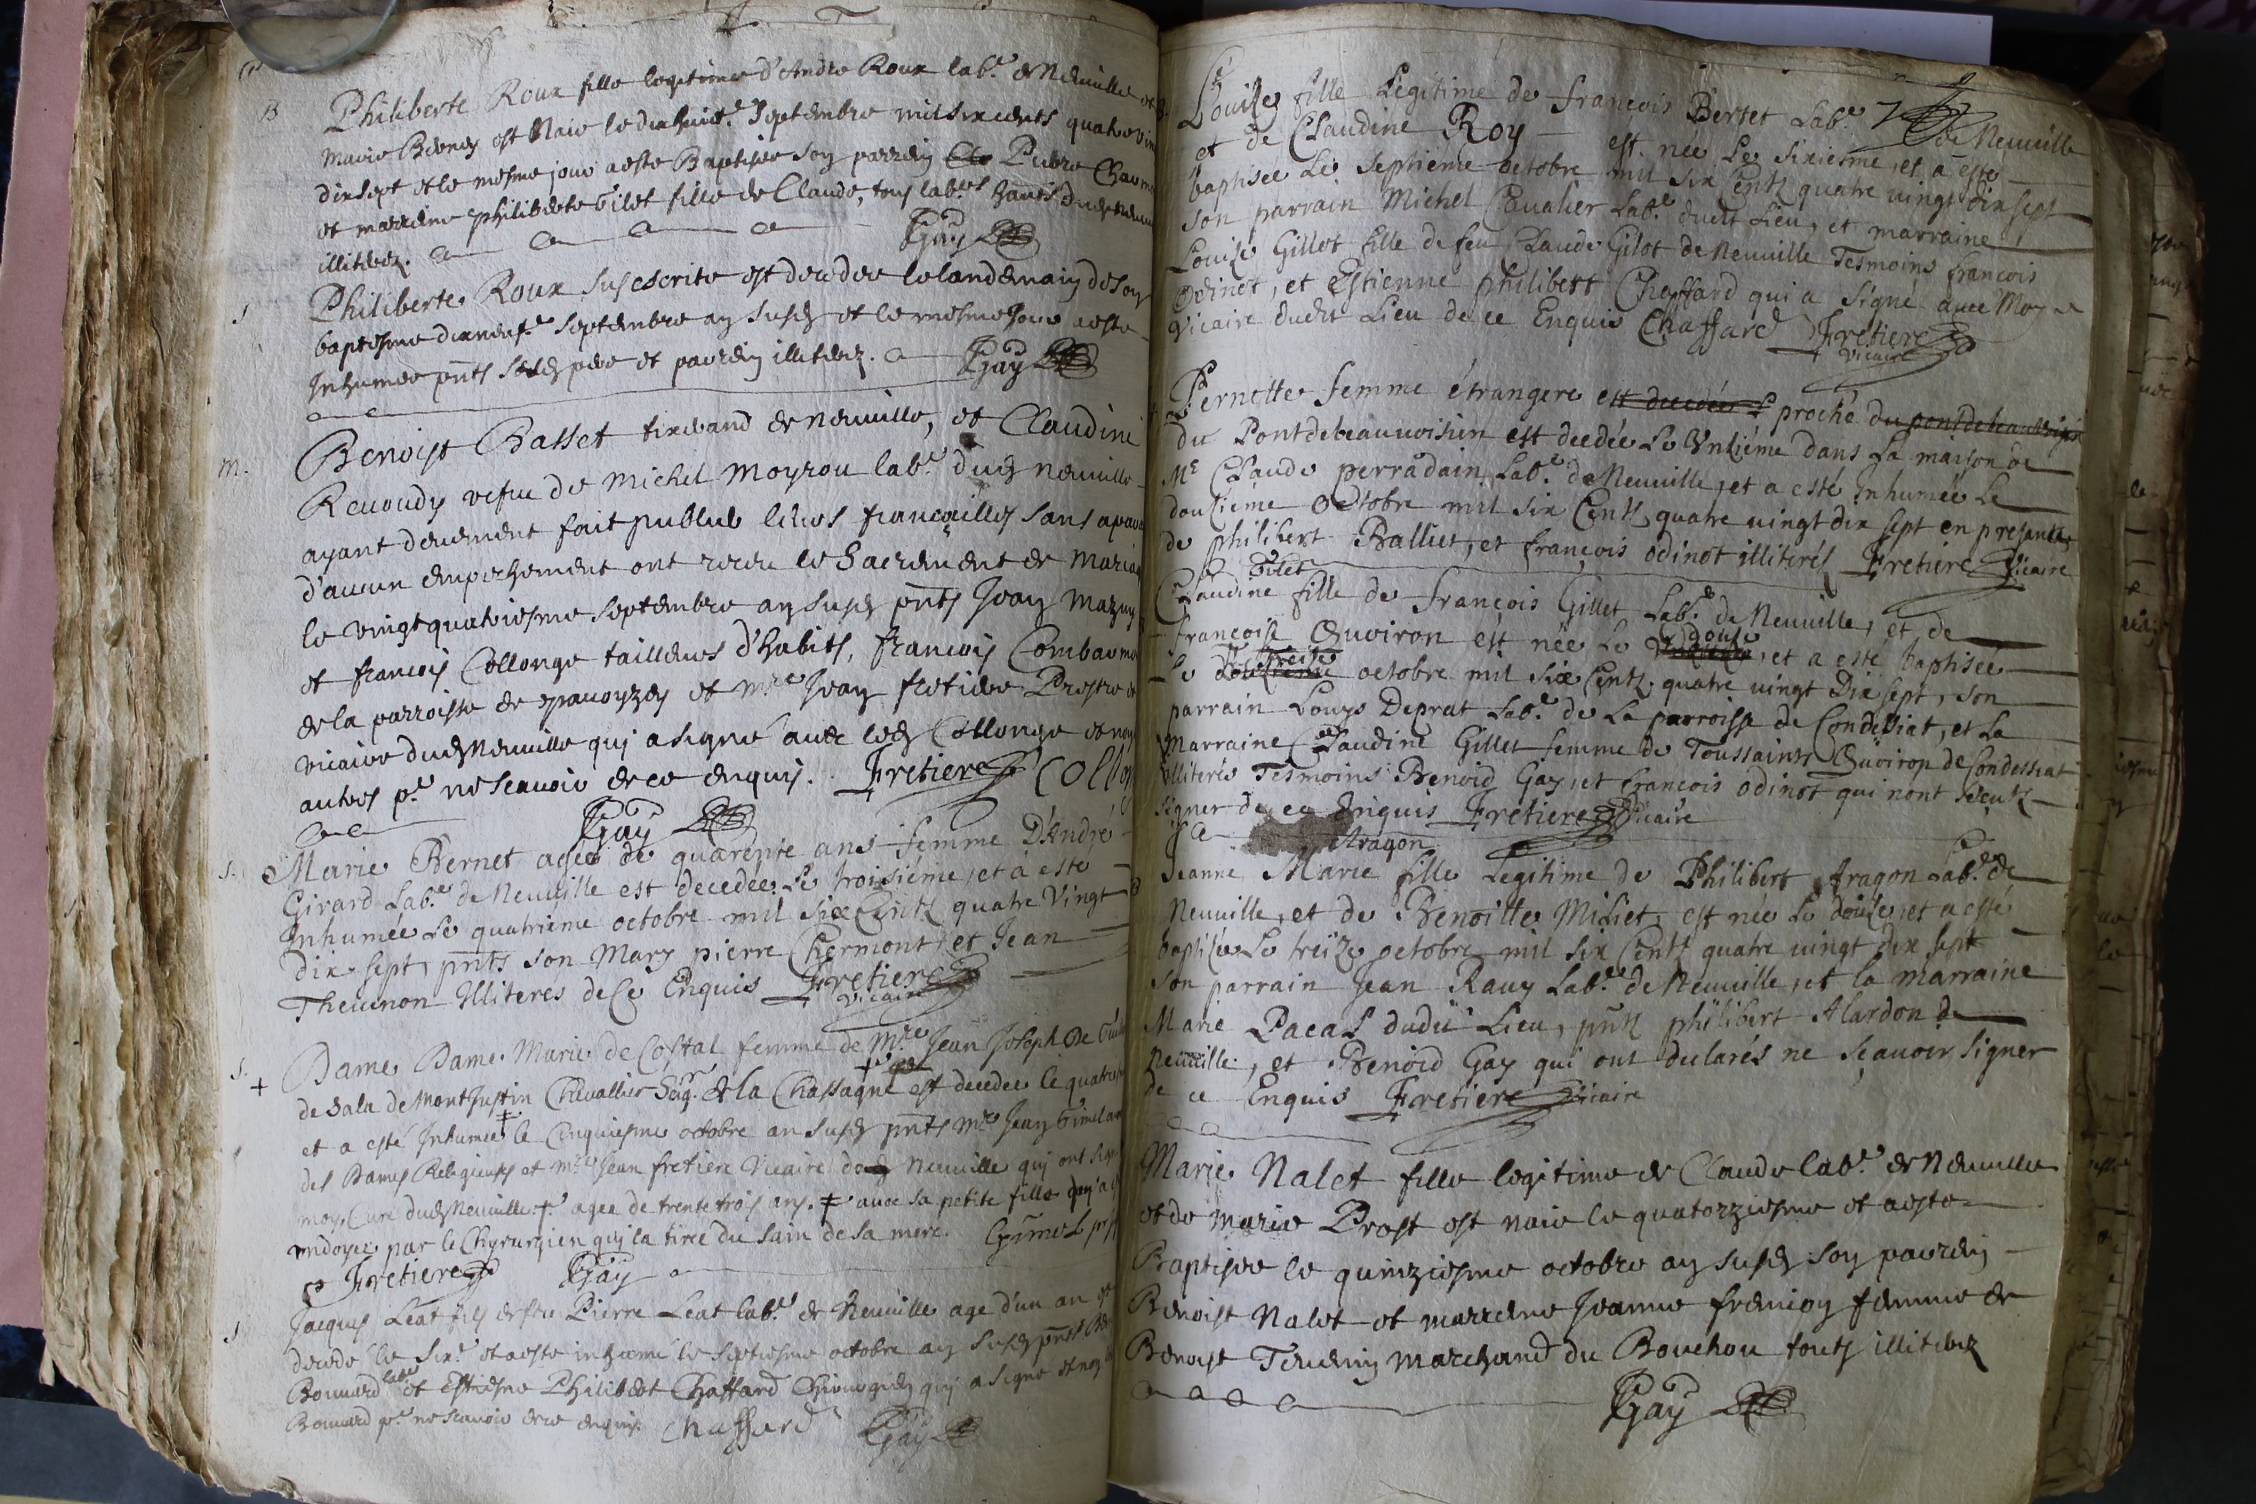 B Philiberte Roux fille legitime d'Andre Roux lab.r de Neuville et
Marie Bernet est Naie le dixhuict.e Septembre mil six cents quatre vin
dix sept et le mesme jour a este Baptisee son parrein Pierre Chaum
et marreine philiberte Gilet fille de Claude, tous lab.rs
illiterez. Gay
S Philiberte Roux susescrite est decedee le landemain de son
baptesme dixneuf.e Septembre an susd et le mesme jour a este
Inhumee pnts sesd pere et parrein illiterez. Gay
M. Benoist Basset tixerand de neuville, et Claudine
Revoudy vefue de Michel Moyrou lab.r dud neuville
ayant deuement fait publier leurs fiançailles sans apar
d'aucun empeschement ont receu le Sacrement de Maria
le vingtquatriesme septembre an susd pnts Jean Mazuy
et françois Collonge tailleurs d'habits, françois Combaumo
de la parroisse de et m.re Jean fretiere Prestre et
vicaire dud Neuville qui a signe avec led Collonge et non
autres p.r ne scauoir de ce enquis. Fretiere Collon
Gay
S. Marie Bernet agée de quarente ans femme D'André
Girard Lab.r de Neuville est decedée Le troisiéme, et a esté
Inhumée Le quatriéme octobre mil six Cents quatre Vingt
dix sept, pnts son Mary pierre Chermont et Jean
Theuenon Illiteres de Ce Enquis Fretiere
Vicaire
S. + Dame Dame Marie de Costal femme de M.re Jean Joseph De
de Sala de Montjustin Cheuallier Seig.r de la Chassagne est decedee le quatries
et a esté Inhumee ‡ le Cinquiesme octobre an susd pnts M.re Jean
des Dames Religieuses et m.re Jean fretiere Vicaire dud Neuville qui ont sign
moy Curé dud Neuville. + agee de trente trois ans. ‡ avec sa petite fille
ondoyee par le Chyrurgien qui la tiree du sain de sa mere.
Fretiere Gay
S Jacques Leat fils de feu Pierre Leat lab.r de Neuville age d'un an est
decede le six.e et a este inhumé le septiesme octobre an susd pnts
Bouuard lab.r et Estienne Philibert Chaffard Chirurgien qui a signe et non led
Bouuard p.r ne scauoir de ce enquis. Chaffard Gay
B. Louise fille Legitime de françois Berset Lab.r de Neuuille
et de Claudine Roy est née Le sixiesme, et a este
baptisée Le septiéme octobre mil six Cents quatre vingt dix sept
son parrain Michel Cavalier Lab.r dudit Lieu, et marraine
Louise Gillet fille de feu Claude Gilot de Neuuille Tesmoins françois
Odinet, et Estienne philibert Chaffard qui a signé avec Moy
Vicaire dudit Lieu de ce Enquis Chaffard Fretiere
Vicaire
Pernette femme étrangere est decedée proche du pontdebeauvoisin
du Pontdebeauuoisin est decedée Le Onziéme dans La maison de
M.e Claude perradain Lab.r de Neuuille, et a esté Inhumée Le
douzieme Octobre mil six Cents quatre vingt dix sept en presance
de philibert Balliet, et françois odinot illiterés Fretiere Vicaire
Gilet
Claudine fille de françois Gillet Lab.r de Neuuille, et de
françoise Quoiron est née Le douze, et a esté baptisée
Le treize octobre mil six Cents quatre vingt Dix sept, son
parrain Louys Deprat Lab.r de La parroisse de Condessiat, et La
Marraine Claudine Gillet femme de Toussaint Quoiron de Condessiat
Illiterés Tesmoins Benoid Gay, et francois odinot qui nont sceut
signer de ce Enquis Fretiere Vicaire
Aragon
Jeanne Marie fille Legitime de Philibert Aragon Lab.r de
Neuuille, et de Benoitte Miliet, est née Le douze, et a esté
baptisée Le treize octobre mil six Cents quatre vingt dix sept
son parrain Jean Rauy Lab.r de Neuuille, et la marraine
Marie Pacal dudit Lieu, pnts philibert Alardon de
Neuuille, et Benoid Gay qui ont declarés ne sçauoir signer
de ce Enquis Fretiere Vicaire
Marie Nalet fille legitime de Claude lab.r de Neuuille
et de Marie Prost est naie le quatorziesme et a este
Baptisee le quinziesme octobre an susd son parrein
Benoist Nalet et marreine Jeanne fremion femme de
Benoist Marchand du Bouchou touts illiterez
Gay